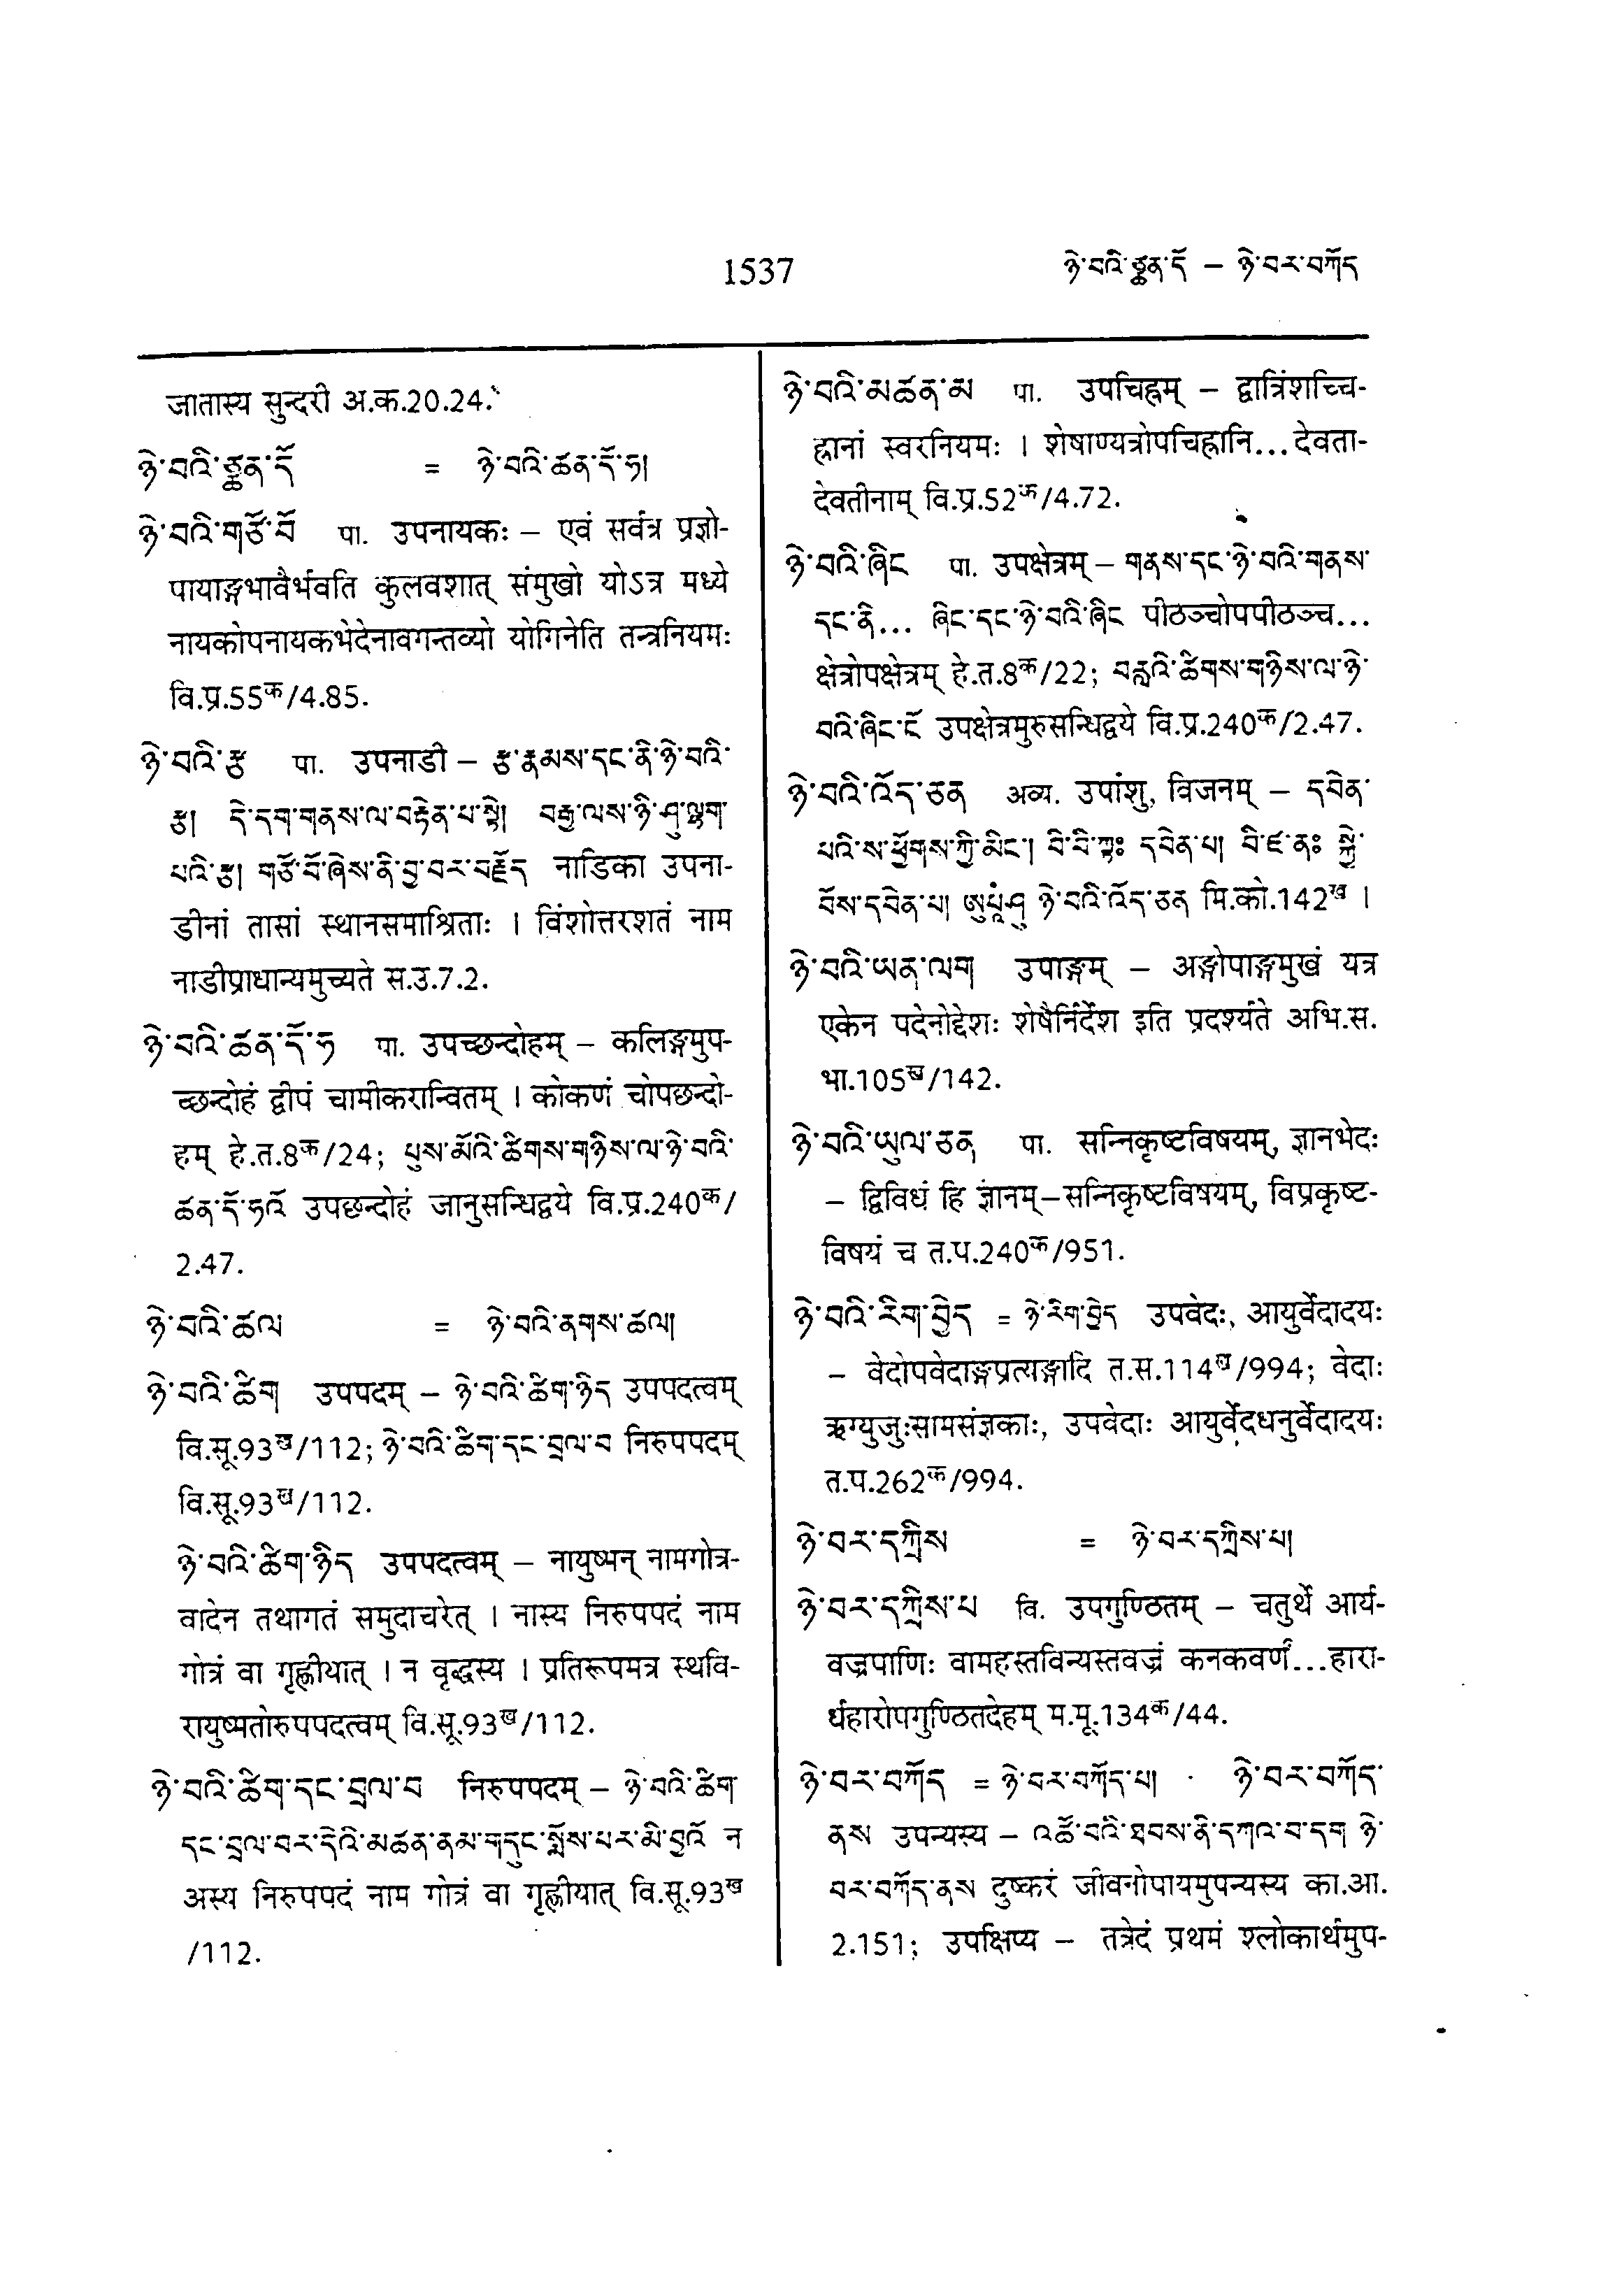 1537
ཉེ་བའི་ཙྪན་དོ – ཉེ་བར་བཀོད
जातास्य सुन्दरी अ.क.20.24.
ཉེ་བའི་ཙྪན་དོ = ཉེ་བའི་ཚན་དོ་ཧ།
ཉེ་བའི་གཙོ་བོ पा. उपनायकः – एवं सर्वत्र प्रज्ञो-
पायाङ्गभावैर्भवति कुलवशात् संमुखो योऽत्र मध्ये
नायकोपनायकभेदेनावगन्तव्यो योगिनेति तन्त्रनियमः
वि.प्र.55क/4.85.
ཉེ་བའི་རྩ पा. उपनाडी – རྩ་རྣམས་དང་ནི་ཉེ་བའི་
རྩ། དེ་དག་གནས་ལ་བརྟེན་པ་སྟེ། བརྒྱ་ལས་ཉི་ཤུ་ལྷག་
པའི་རྩ། གཙོ་བོ་ཞེས་ནི་བྱ་བར་བརྗོད नाडिका उपना-
डीनां तासां स्थानसमाश्रिताः । विंशोत्तरशतं नाम
नाडीप्राधान्यमुच्यते स.उ.7.2.
ཉེ་བའི་ཚན་དོ་ཧ पा. उपच्छन्दोहम् – कलिङ्गमुप-
च्छन्दोहं द्वीपं चामीकरान्वितम् । कोकणं चोपछन्दो-
हम् हे.त.8क/24; པུས་མོའི་ཚིགས་གཉིས་ལ་ཉེ་བའི་
ཚན་དོ་ཧའོ उपछन्दोहं जानुसन्धिद्वये वि.प्र.240क/
2.47.
ཉེ་བའི་ཚལ = ཉེ་བའི་ནགས་ཚལ།
ཉེ་བའི་ཚིག उपपदम् – ཉེ་བའི་ཚིག་ཉིད उपपदत्वम्
वि.सू.93ख/112; ཉེ་བའི་ཚིག་དང་བྲལ་བ निरुपपदम्
वि.सू.93ख/112.
ཉེ་བའི་ཚིག་ཉིད उपपदत्वम् – नायुष्मन् नामगोत्र-
वादेन तथागतं समुदाचरेत् । नास्य निरुपपदं नाम
गोत्रं वा गृह्णीयात् । न वृद्धस्य । प्रतिरूपमत्र स्थवि-
रायुष्मतोरुपपदत्वम् वि.सू.93ख/112.
ཉེ་བའི་ཚིག་དང་བྲལ་བ निरुपपदम् – ཉེ་བའི་ཚིག
དང་བྲལ་བར་དེའི་མཚན་ནམ་གདུང་སྨོས་པར་མི་བྱའོ न
अस्य निरुपपदं नाम गोत्रं वा गृह्णीयात् वि.सू.93ख
/112.
ཉེ་བའི་མཚན་མ पा. उपचिह्नम् – द्वात्रिंशच्चि-
ह्नानां स्वरनियमः । शेषाण्यत्रोपचिह्नानि...देवता-
देवतीनाम् वि.प्र.52क/4.72.
ཉེ་བའི་ཞིང पा. उपक्षेत्रम् – གནས་དང་ཉེ་བའི་གནས་
དང་ནི... ཞིང་དང་ཉེ་བའི་ཞིང पीठञ्चोपपीठञ्च...
क्षेत्रोपक्षेत्रम् हे.त.8क/22; བརླའི་ཚིགས་གཉིས་ལ་ཉེ་
བའི་ཞིང་ངོ उपक्षेत्रमुरुसन्धिद्वये वि.प्र.240क/2.47.
ཉེ་བའི་འོད་ཅན अव्य. उपांशु, विजनम् – དབེན་
པའི་ས་ཕྱོགས་ཀྱི་མིང་། བི་བི་ཀྟཿ དབེན་པ། བི་ཛ་ནཿ སྐྱེ་
བོས་དབེན་པ། ཨུཔཱཾ་ཤུ ཉེ་བའི་འོད་ཅན मि.को.142ख ।
ཉེ་བའི་ཡན་ལག उपाङ्गम् – अङ्गोपाङ्गमुखं यत्र
एकेन पदेनोद्देशः शेषैर्निर्देश इति प्रदर्श्यते अभि.स.
भा.105ख/142.
ཉེ་བའི་ཡུལ་ཅན पा. सन्निकृष्टविषयम्, ज्ञानभेदः
– द्विविधं हि ज्ञानम्–सन्निकृष्टविषयम्, विप्रकृष्ट-
विषयं च त.प.240क/951.
ཉེ་བའི་རིག་བྱེད = ཉེ་རིག་བྱེད उपवेदः, आयुर्वेदादयः
– वेदोपवेदाङ्गप्रत्यङ्गादि त.स.114ख/994; वेदाः
ऋग्युजुःसामसंज्ञकाः, उपवेदाः आयुर्वेदधनुर्वेदादयः
त.प.262क/994.
ཉེ་བར་དཀྲིས = ཉེ་བར་དཀྲིས་པ།
ཉེ་བར་དཀྲིས་པ वि. उपगुण्ठितम् – चतुर्थे आर्य-
वज्रपाणिः वामहस्तविन्यस्तवज्रं कनकवर्णं...हारा-
र्धहारोपगुण्ठितदेहम् म.मू.134क/44.
ཉེ་བར་བཀོད = ཉེ་བར་བཀོད་པ། ཉེ་བར་བཀོད་
ནས उपन्यस्य – འཚོ་བའི་ཐབས་ནི་དཀའ་བ་དག ཉེ་
བར་བཀོད་ནས दुष्करं जीवनोपायमुपन्यस्य का.आ.
2.151; उपक्षिप्य – तत्रेदं प्रथमं श्लोकार्थमुप-